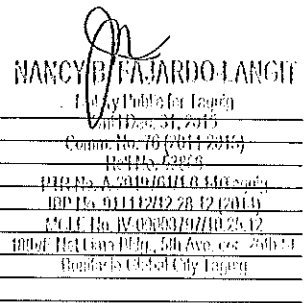 NANCY B. FAJARDO-LANGIT
Notary Public for Taguig
Until Dec. 31, 2015
Comm. No. 76 (2014-2015)
Roll No.
PTR No. A-
IBP No. 911112/12.28.12 (2014)
MCLE No. IV-00003797/10.25.12
Net Lima Bldg., 5th Ave. cor. 26th St.
Bonifacio Global City Taguig